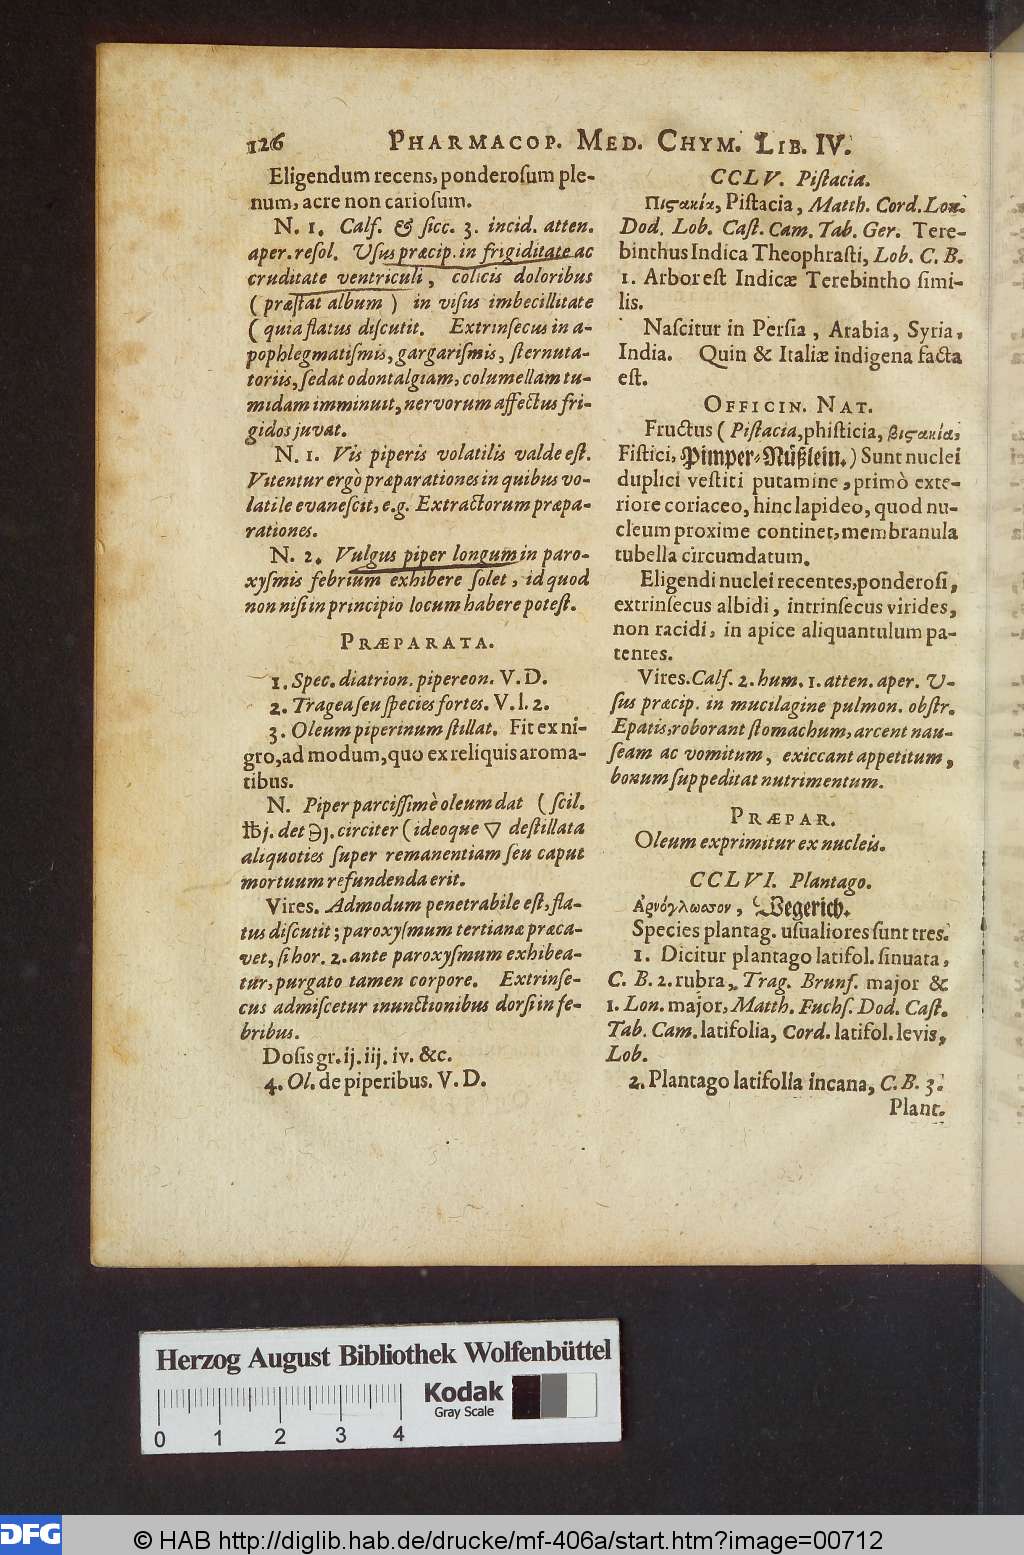 126 PHARMACOP. MED. CHYM. LIB. IV.
Eligendum recens, ponderoſum ple-
num, acre non carioſum.
N. 1. Calf. & ſicc. 3. incid. atten.
aper. reſol. Uſus præcip. in frigiditate ac
cruditate ventriculi, colicis doloribus
(præſtat album) in viſus imbecillitate
(quia flatus diſcutit. Extrinſecus in a-
pophlegmatiſmis, gargariſmis, ſternuta-
toriis, ſedat odontalgiam, columellam tu-
midam imminuit, nervorum affectus fri-
gidos juvat.
N. 1. Vis piperis volatilis valde eſt.
Vitentur ergò præparationes in quibus vo-
latile evaneſcit, e.g. Extractorum præpa-
rationes.
N. 2. Vulgus piper longum in paro-
xyſmis febrium exhibere ſolet, id quod
non niſi in principio locum habere poteſt.
PRÆPARATA.
1. Spec. diatrion. pipereon. V. D.
2. Tragea ſeu ſpecies fortes. V. l. 2.
3. Oleum piperinum ſtillat. Fit ex ni-
gro, ad modum, quo ex reliquis aroma-
tibus.
N. Piper parciſſimè oleum dat (ſcil.
℔j. det ℈j. circiter (ideoque ▽ deſtillata
aliquoties ſuper remanentiam ſeu caput
mortuum refundenda erit.
Vires. Admodum penetrabile eſt, fla-
tus diſcutit; paroxyſmum tertianæ præca-
vet, ſi hor. 2. ante paroxyſmum exhibea-
tur, purgato tamen corpore. Extrinſe-
cus admiſcetur inunctionibus dorſi in fe-
bribus.
Doſis gr. ij. iij. iv. &c.
4. Ol. de piperibus. V. D.
CCLV. Piſtacia.
Πιςακία, Piſtacia, Matth. Cord. Lon.
Dod. Lob. Caſt. Cam. Tab. Ger. Tere-
binthus Indica Theophraſti, Lob. C. B.
1. Arbor eſt Indicæ Terebintho ſimi-
lis.
Naſcitur in Perſia, Arabia, Syria,
India. Quin & Italiæ indigena facta
eſt.
OFFICIN. NAT.
Fructus (Piſtacia, phiſticia, βιςακία,
Fiſtici, Pimper-Nüßlein.) Sunt nuclei
duplici veſtiti putamine, primò exte-
riore coriaceo, hinc lapideo, quod nu-
cleum proxime continet, membranula
tubella circumdatum.
Eligendi nuclei recentes, ponderoſi,
extrinſecus albidi, intrinſecus virides,
non racidi, in apice aliquantulum pa-
tentes.
Vires. Calf. 2. hum. 1. atten. aper. U-
ſus præcip. in mucilagine pulmon. obſtr.
Epatis, roborant ſtomachum, arcent nau-
ſeam ac vomitum, exiccant appetitum,
bonum ſuppeditat nutrimentum.
PRÆPAR.
Oleum exprimitur ex nucleis.
CCLVI. Plantago.
Ἀρνόγλωσσον, Wegerich.
Species plantag. uſualiores ſunt tres.
1. Dicitur plantago latifol. ſinuata,
C. B. 2. rubra, Trag. Brunf. major &
1. Lon. major, Matth. Fuchſ. Dod. Caſt.
Tab. Cam. latifolia, Cord. latifol. levis,
Lob.
2. Plantago latifolia incana, C. B. 3.
Plant.
Herzog August Bibliothek Wolfenbüttel
Kodak
Gray Scale
0 1 2 3 4
DFG
© HAB http://diglib.hab.de/drucke/mf-406a/start.htm?image=00712